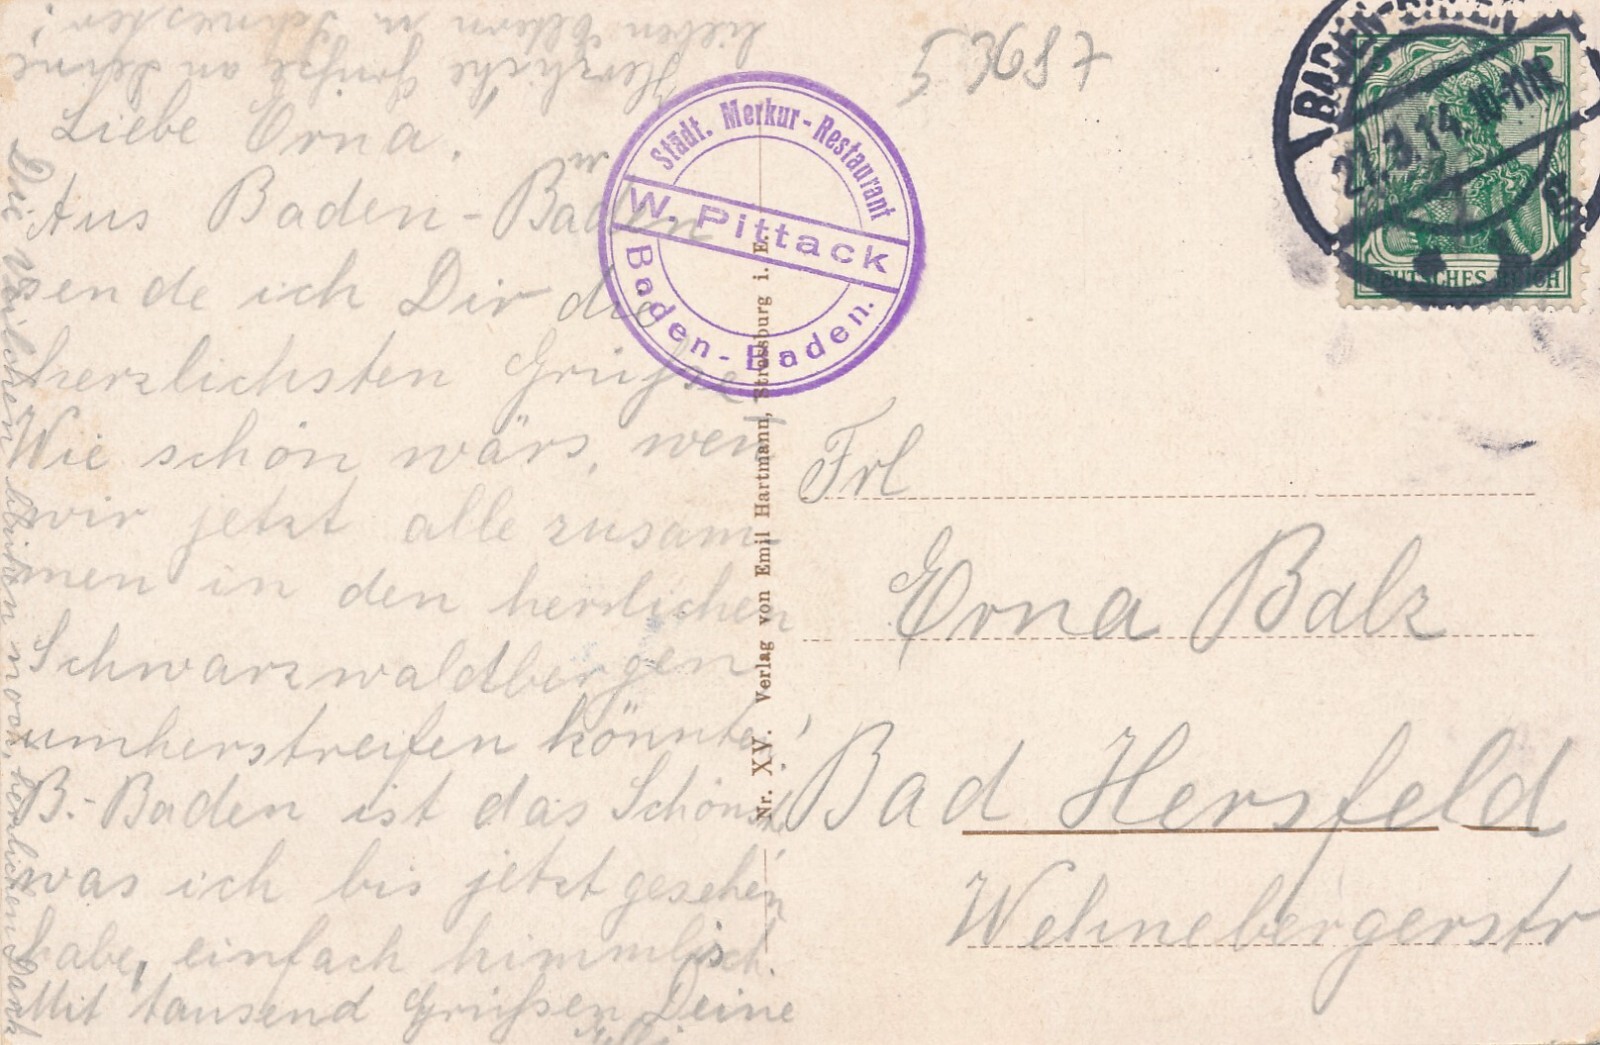 Herzliche Grüße an Deine
lieben Eltern u Schwester!
Liebe Erna.
Aus Baden-Baden
sende ich Dir die
herzlichsten Grüße
Wie schön wärs, wen̅
wir jetzt alle zusam-
men in den herrlichen
Schwarzwaldbergen
umherstreifen könnten!
B.-Baden ist das Schönste
was ich bis jetzt gesehen
habe, einfach himmlisch.
Mit tausend Grüßen Deine
Die Veilchen blühen noch, herzlichen Dank
53687
Städt. Merkur-Restaurant
W. Pittack
Baden-Baden.
Nr. XV. Verlag von Emil Hartmann, Strassburg i. E.
BADEN-BADEN
3.14. 10-11N.
5 5
DEUTSCHES REICH
Frl
Erna Balz
Bad Hersfeld
Wehnebergerstr